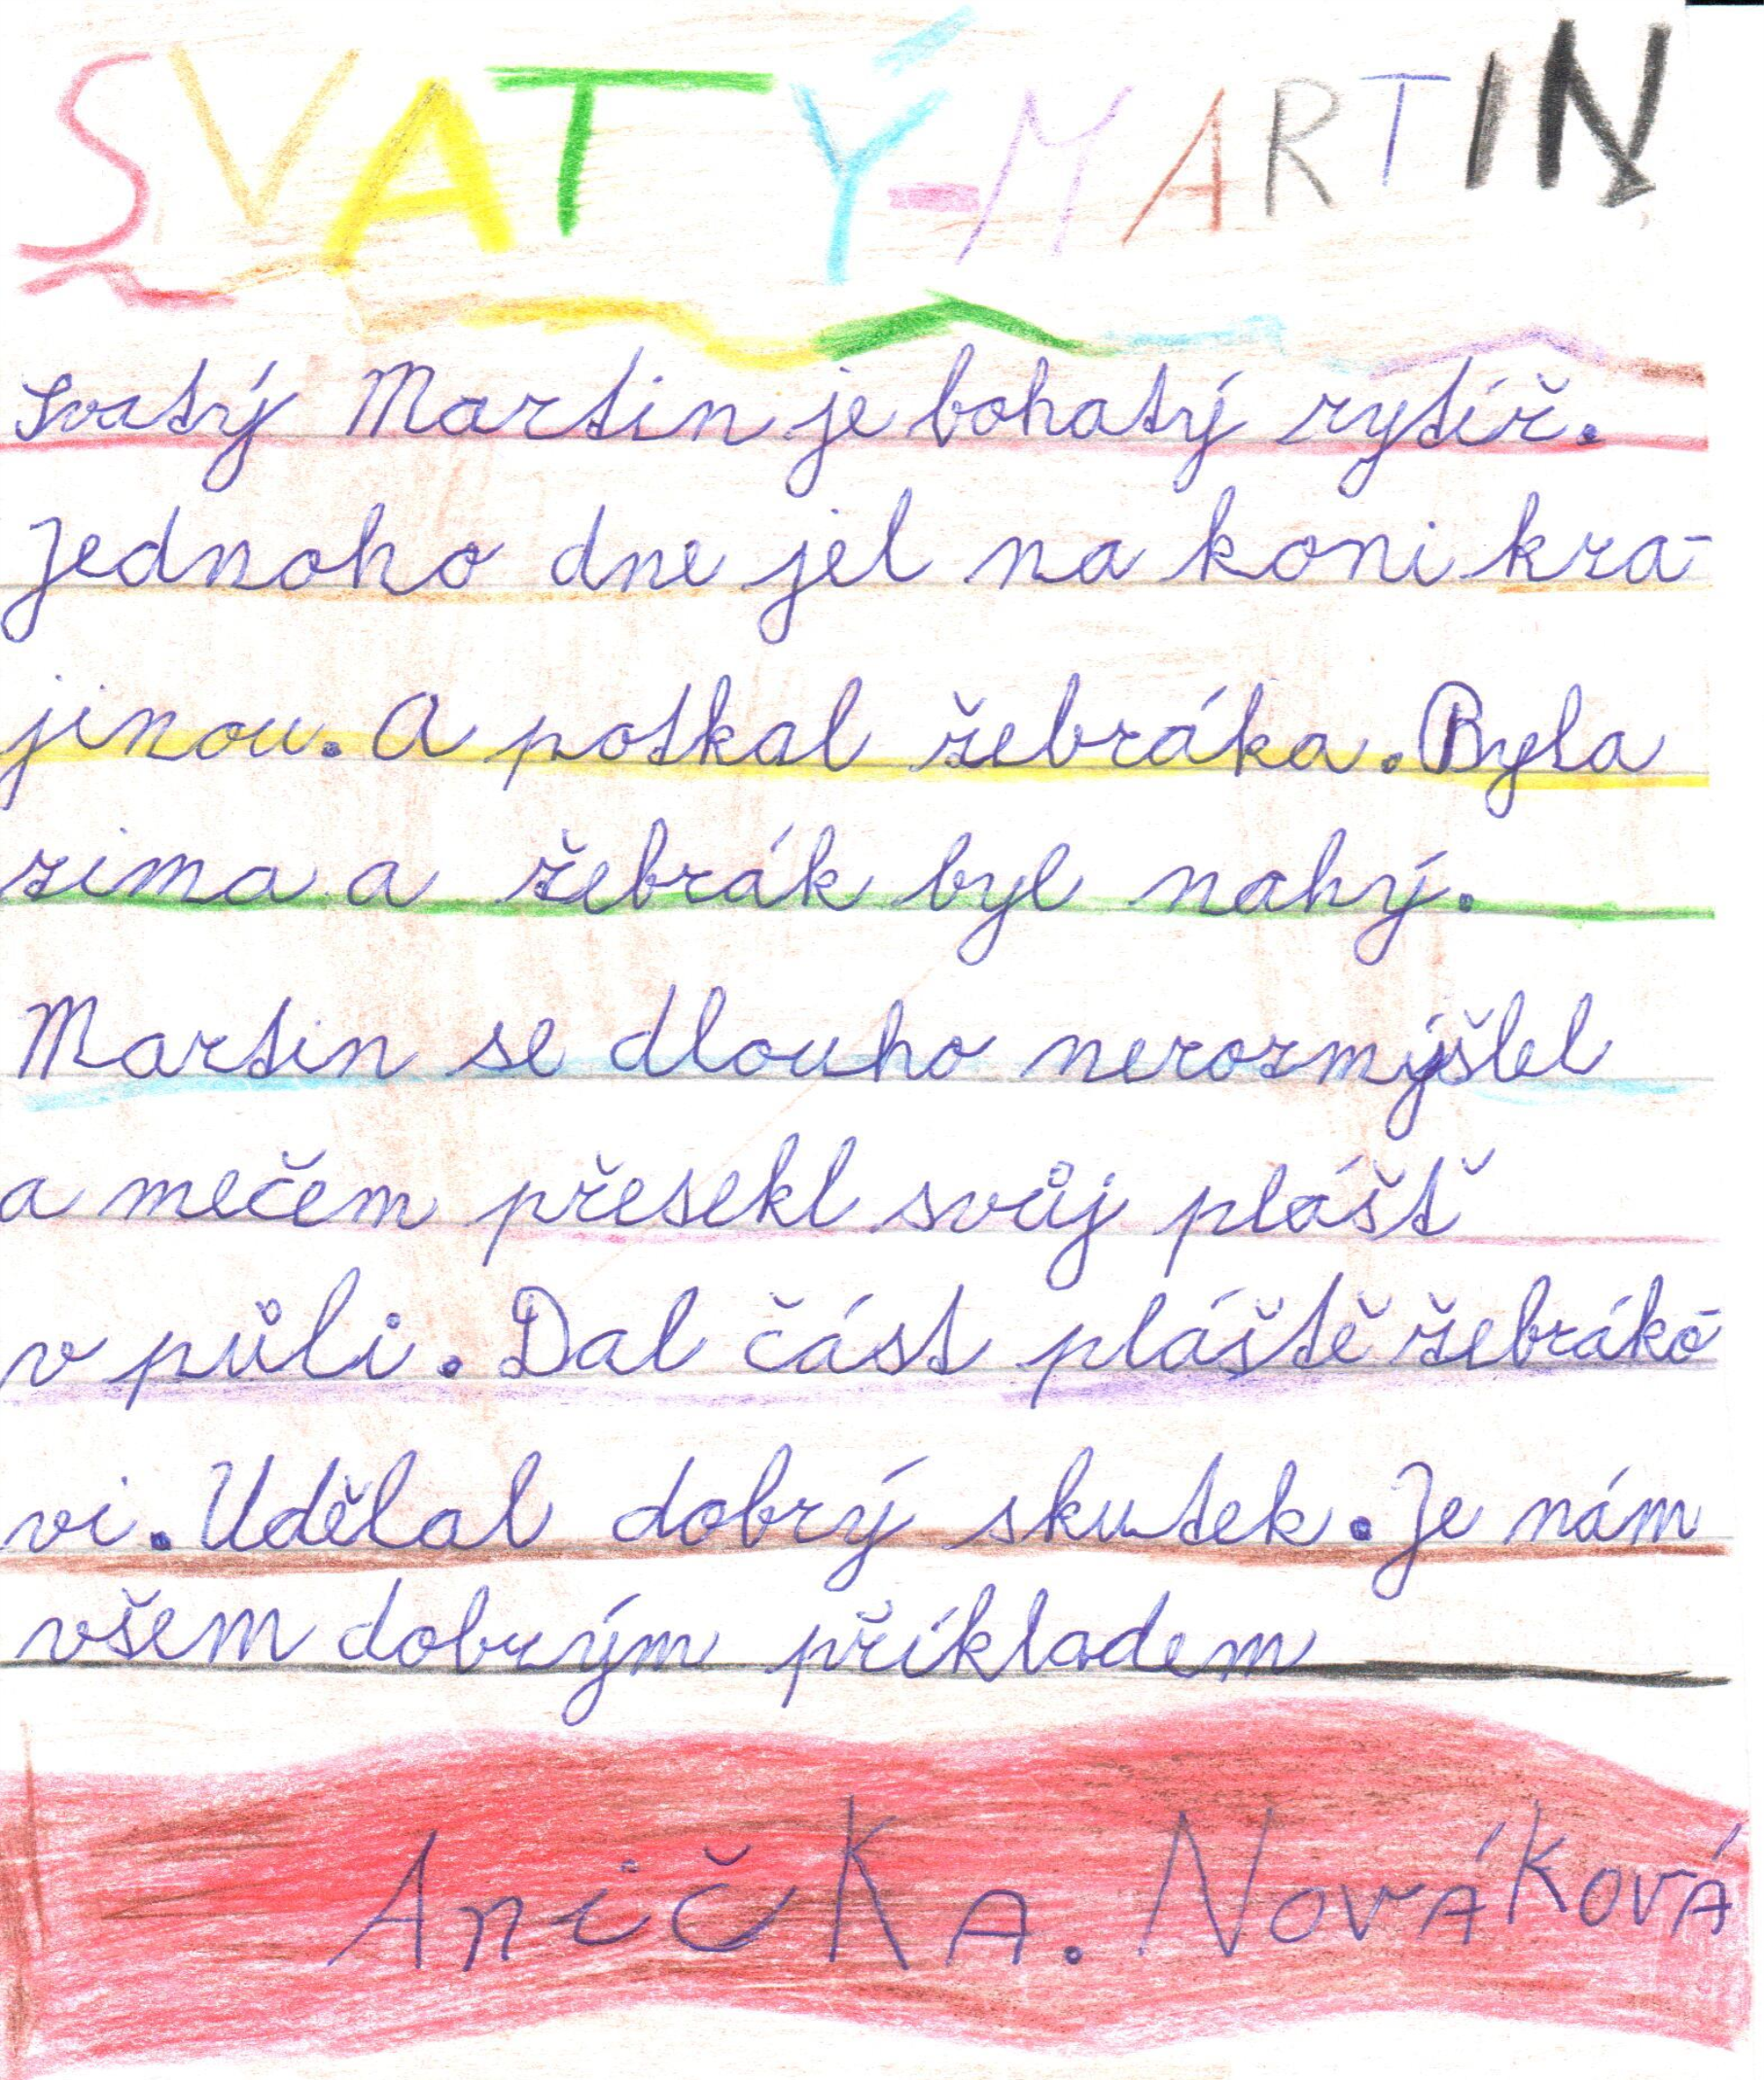 SVATÝ-MARTIN
svatý Martin je bohatý rytíř.
Jednoho dne jel na koni kra-
jinou. A potkal žebráka. Byla
zima a žebrák byl nahý.
Martin se dlouho nerozmýšlel
a mečem přesekl svůj plášť
v půli. Dal část pláště žebráko-
vi. Udělal dobrý skutek. Je nám
všem dobrým příkladem
Anička. Nováková